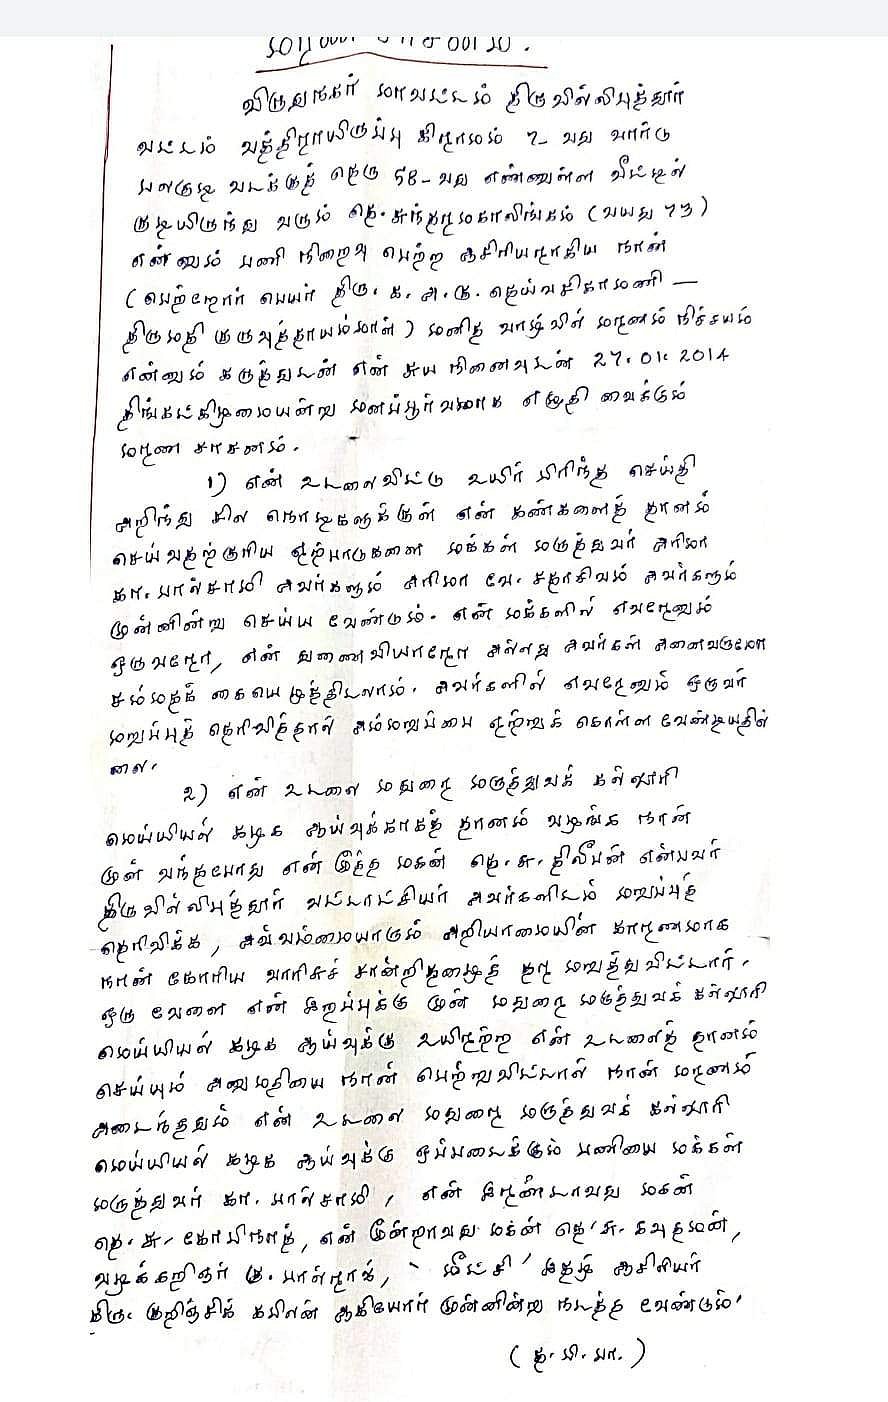 மரண சாசனம்.
விருதுநகர் மாவட்டம் திருவில்லிபுத்தூர்
வட்டம் வத்திறாயிருப்பு கிறாமம் 7-வது வார்டு
மலகுடி வடக்குத் தெரு 58-வது எண்ணுள்ள வீட்டில்
குடியிருந்து வரும் தெ. சுந்தரமகாலிங்கம் (வயது 73)
என்னும் பணி நிறைவு பெற்ற ஆசிரியராகிய நான்
(பெற்றோர் பெயர் திரு. க. அ. கு. தெய்வசிகாமணி –
திருமதி குருவுத்தாயம்மாள்) மனித வாழ்வில் மரணம் நிச்சயம்
என்னும் கருத்துடன் என் சுய நினைவுடன் 27.01.2014
திங்கட்கிழமையன்று மனப்பூர்வமாக எழுதி வைக்கும்
மரண சாசனம்.
1) என் உடலைவிட்டு உயிர் பிரிந்த செய்தி
அறிந்து சில நொடிகளுக்குள் என் கண்களைத் தானம்
செய்வதற்குரிய ஏற்பாடுகளை மக்கள் மருத்துவர் அரிமா
கா. பால்சாமி அவர்களும் அரிமா வே. சதாசிவம் அவர்களும்
முன்னின்று செய்ய வேண்டும். என் மக்களில் எவரேனும்
ஒருவரோ, என் துணைவியாரோ அல்லது அவர்கள் அனைவருமோ
சம்மதக் கையெழுத்திடலாம். அவர்களில் எவரேனும் ஒருவர்
மறுப்புத் தெரிவித்தால் அம்மறுப்பை ஏற்றுக் கொள்ள வேண்டியதில்
லை.
2) என் உடலை மதுரை மருத்துவக் கல்லூரி
மெய்யியல் கழக ஆய்வுக்காகத் தானம் வழங்க நான்
முன் வந்தபோது என் மூத்த மகன் தெ. சு. திலீபன் என்பவர்
திருவில்லிபுத்தூர் வட்டாட்சியர் அவர்களிடம் மறுப்புத்
தெரிவிக்க, அவ்வம்மையாரும் அறியாமையின் காரணமாக
நான் கோரிய வாரிசுச் சான்றிதழைத் தர மறுத்துவிட்டார்.
ஒரு வேளை என் இறப்புக்கு முன் மதுரை மருத்துவக் கல்லூரி
மெய்யியல் கழக ஆய்வுக்கு உயிரற்ற என் உடலைத் தானம்
செய்யும் அனுமதியை நான் பெற்றுவிட்டால் நான் மரணம்
அடைந்ததும் என் உடலை மதுரை மருத்துவக் கல்லூரி
மெய்யியல் கழக ஆய்வுக்கு ஒப்படைக்கும் பணியை மக்கள்
மருத்துவர் கா. பால்சாமி, என் இரண்டாவது மகன்
தெ. சு. கோபிநாத், என் மூன்றாவது மகன் தெ. சு. கவுதமன்,
வழக்கறிஞர் கு. பால்ராஜ், ' மீட்சி ' இதழ் ஆசிரியர்
திரு. குறிஞ்சிக் கபிலன் ஆகியோர் முன்னின்று நடத்த வேண்டும்.
(த. பி. பா.)